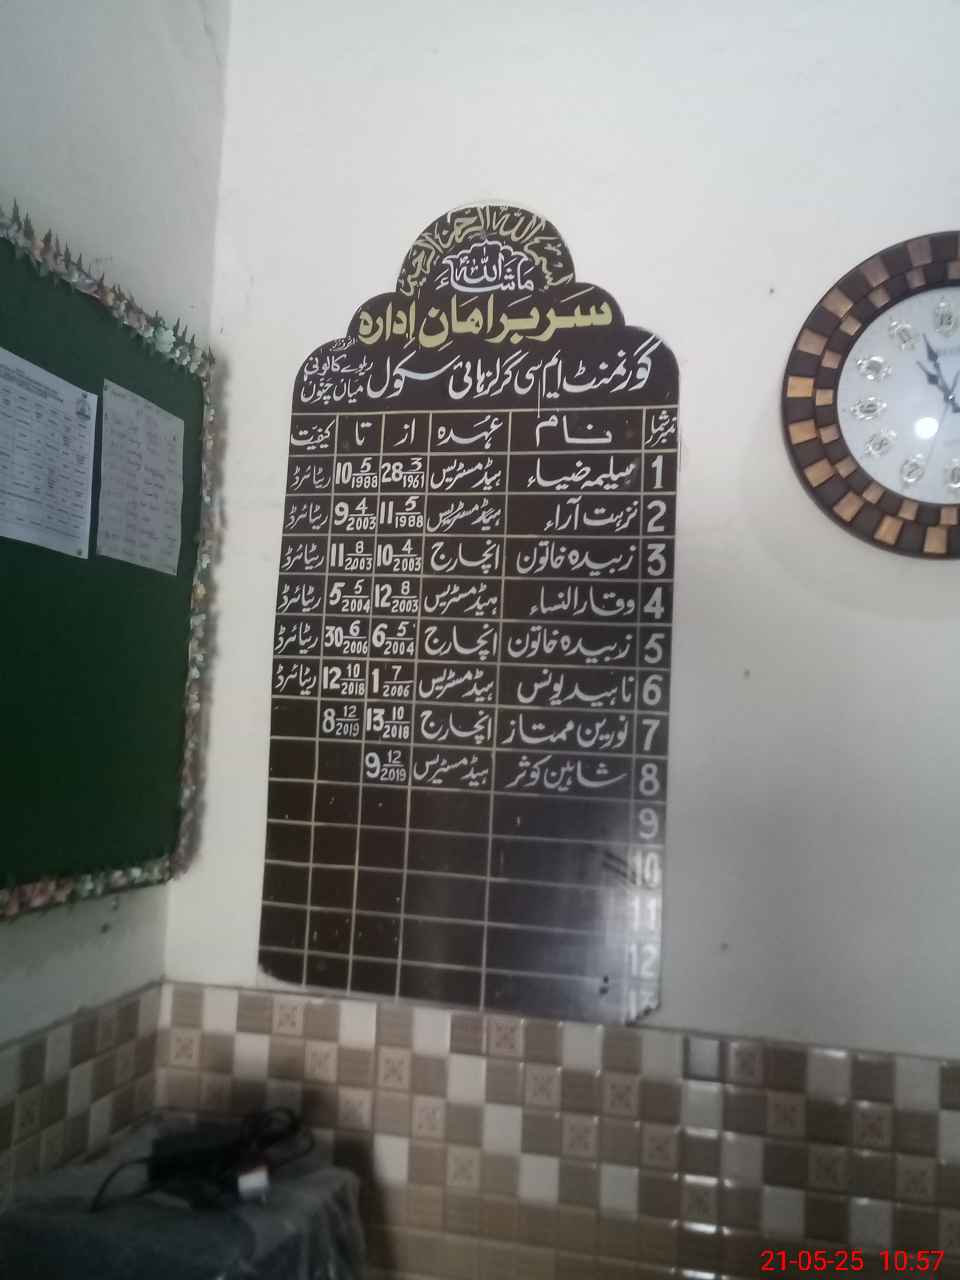 بسم الله الرحمن الرحيم
ماشاءالله
سربراہانِ ادارہ
گورنمنٹ ایم سی گرلز ہائی سکول ریلوے کالونی میاں چنوں
نمبر شمار نام عہدہ از تا کیفیت
1 سلیمہ ضیاء ہیڈ مسٹریس 28 3/1961 10 5/1988 ریٹائرڈ
2 نزہت آراء ہیڈ مسٹریس 11 5/1988 9 4/2003 ریٹائرڈ
3 زبیدہ خاتون انچارج 10 4/2003 11 8/2003 ریٹائرڈ
4 وقار النساء ہیڈ مسٹریس 12 8/2003 5 5/2004 ریٹائرڈ
5 زبیدہ خاتون انچارج 6 5/2004 30 6/2006 ریٹائرڈ
6 ناہید یونس ہیڈ مسٹریس 1 7/2006 12 10/2018 ریٹائرڈ
7 نورین ممتاز انچارج 13 10/2018 8 12/2019
8 شاہین کوثر ہیڈ مسٹریس 9 12/2019
9
10
11
12
21-05-25 10:57